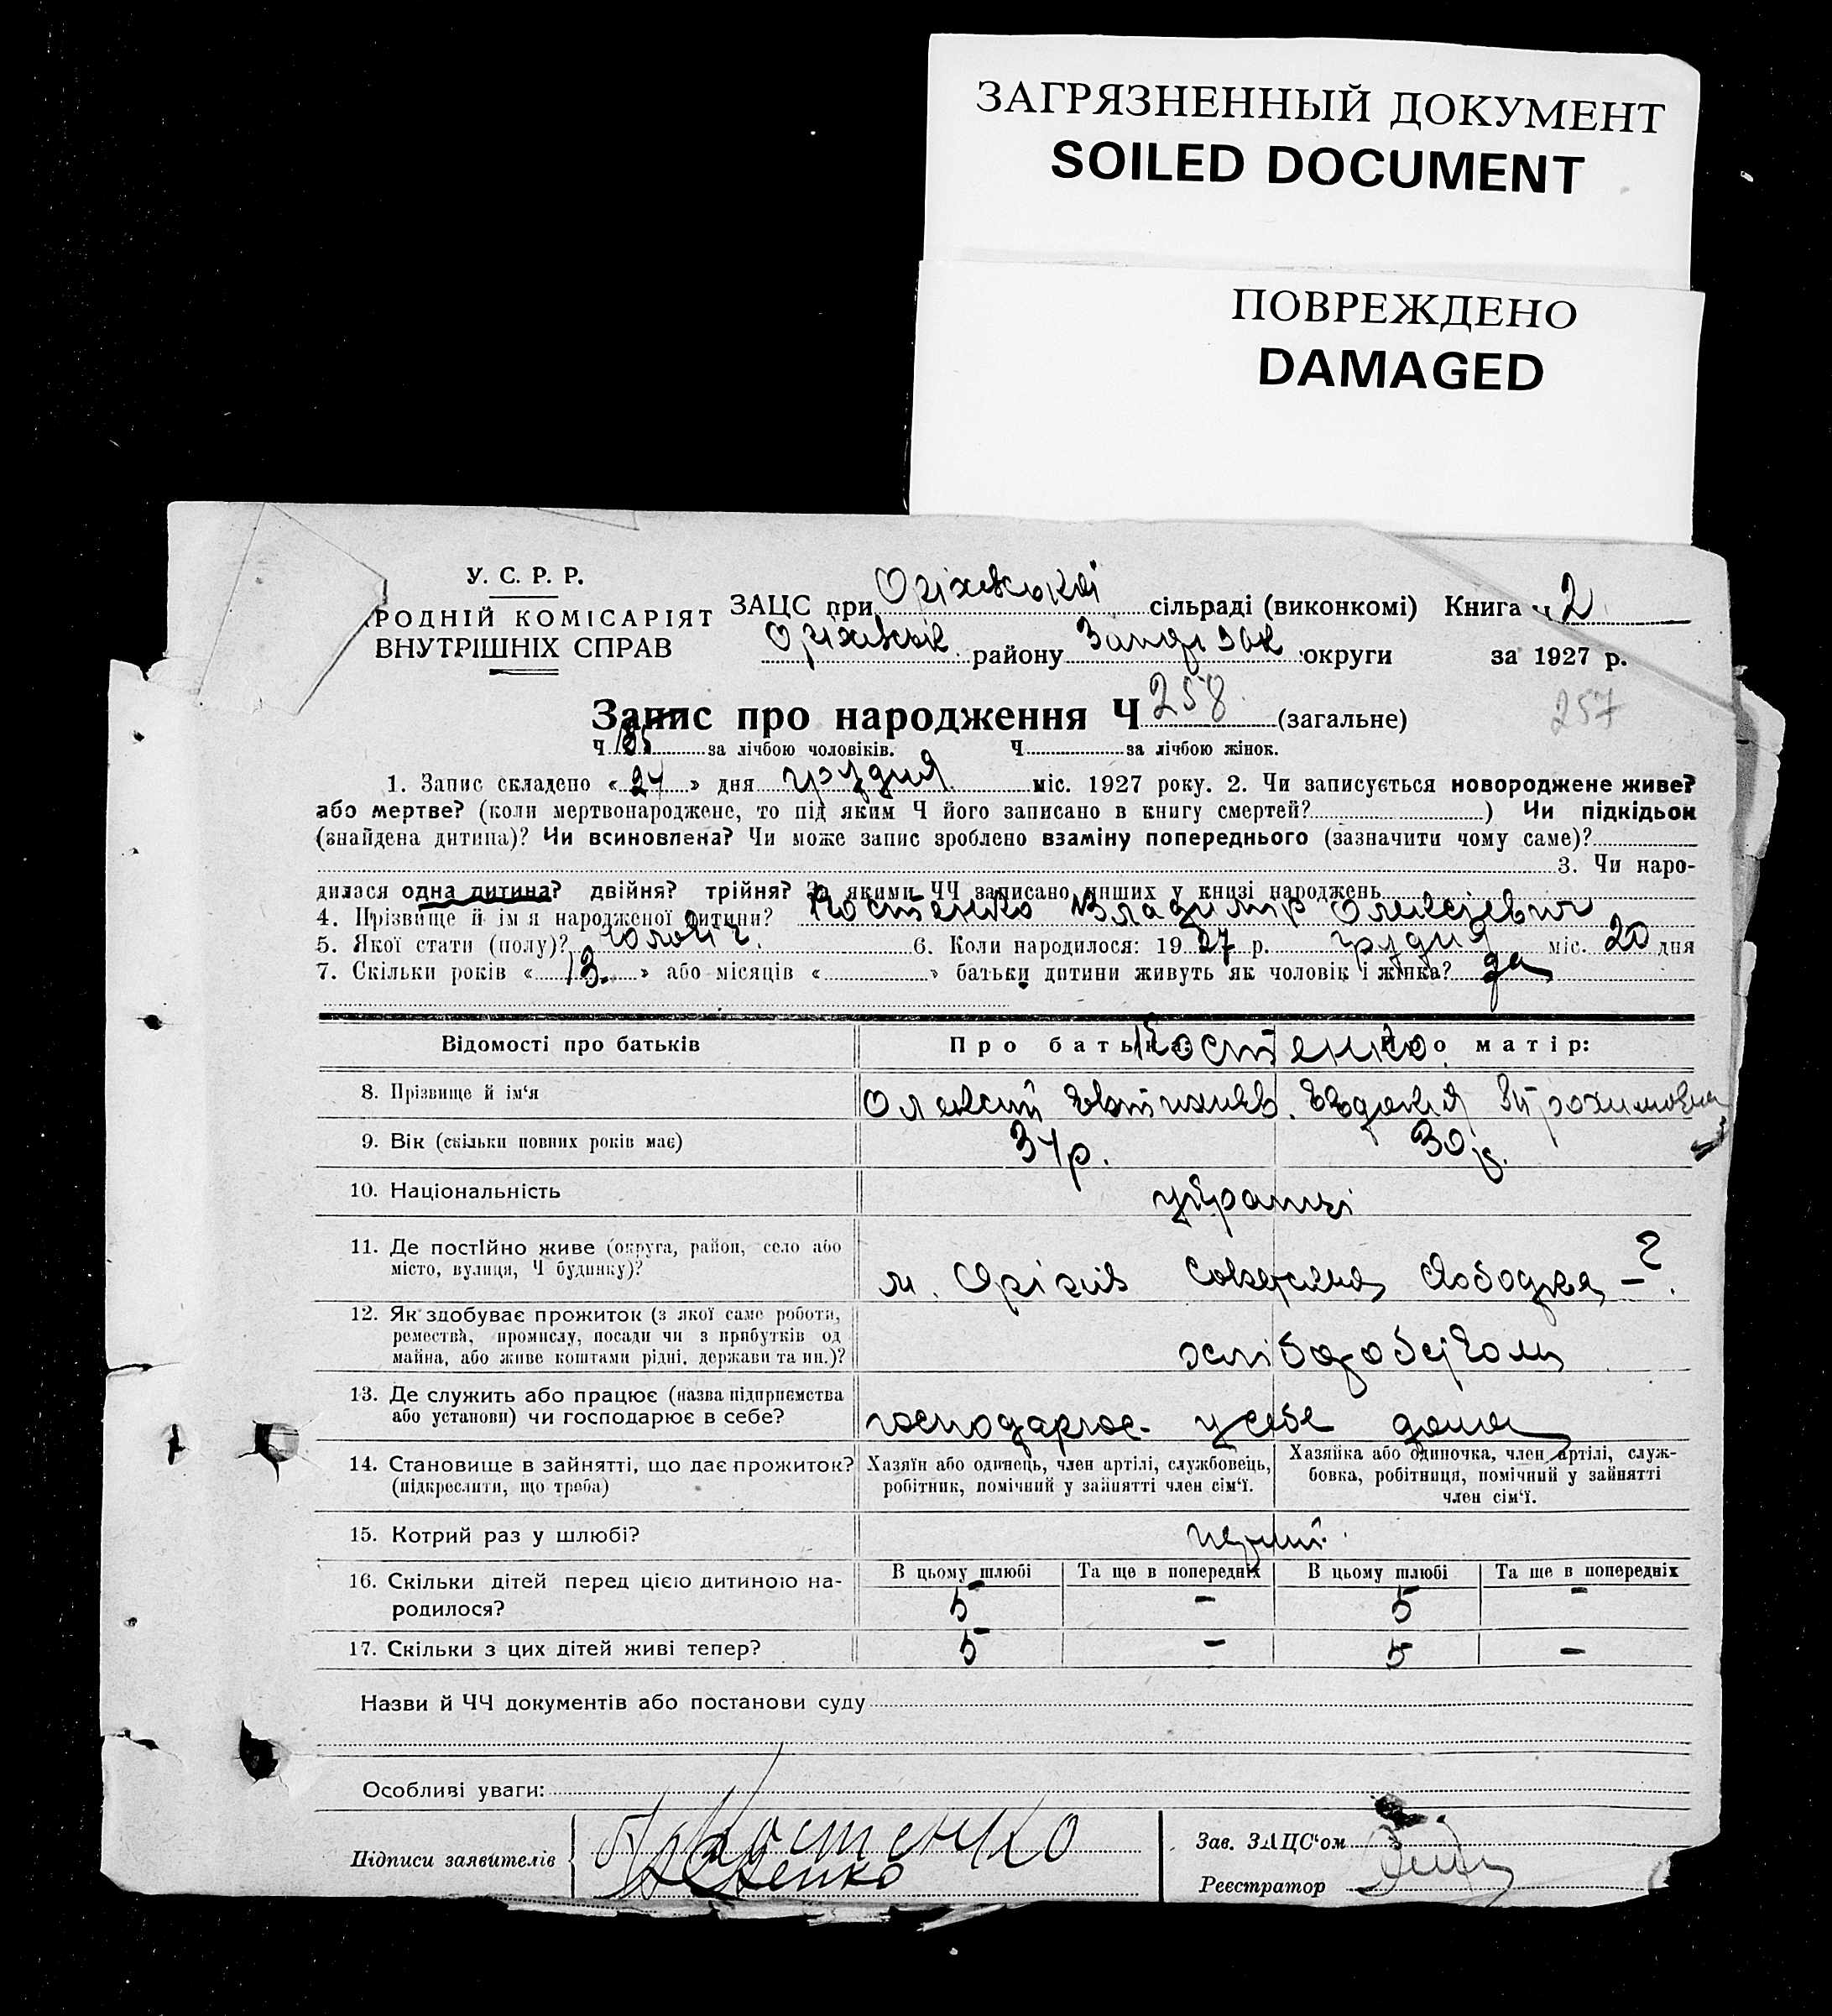 ЗАГРЯЗНЕННЫЙ ДОКУМЕНТ
SOILED DOCUMENT
ПОВРЕЖДЕНО
DAMAGED
У. С. Р. Р.
РОДНІЙ КОМІСАРІЯТ
ВНУТРІШНІХ СПРАВ
ЗАЦС при Оріхівській сільраді (виконкомі) Книга ч 2
Оріхівськ району Запорізьк округи за 1927 р.
257
Запис про народження Ч 258 (загальне)
Ч 135 за лічбою чоловіків. Ч за лічбою жінок.
1. Запис складено « 27 » дня грудня міс. 1927 року. 2. Чи записується новороджене живе?
або мертве? (коли мертвонароджене, то під яким Ч його записано в книгу смертей? ) Чи підкідьок
(знайдена дитина)? Чи всиновлена? Чи може запис зроблено взаміну попереднього (зазначити чому саме)?
3. Чи наро-
дилася одна дитина? двійня? трійня? За якими ЧЧ записано инших у книзі народжень
4. Прізвище й ім'я народженої дитини? Костенко Владимір Олексієвич
5. Якої стати (полу)? чоловіч. 6. Коли народилося: 19 27 р. грудня міс. 20 дня
7. Скільки років « 13 » або місяців « » батьки дитини живуть як чоловік і жінка? да
Відомості про батьків Про батька: Про матір:
Костенко
8. Прізвище й ім'я Олексій Евтихиев. Евдокия
9. Вік (скільки повних років має) 34 р. 30 р.
10. Національність українці
11. Де постійно живе (округа, район, село або
місто, вулиця, Ч будинку)? м. Оріхів слободка — ?
12. Як здобуває прожиток (з якої саме роботи,
ремества, промислу, посади чи з прибутків од
майна, або живе коштами рідні, держави та ин.)? хліборобством
13. Де служить або працює (назва підприємства
або установи) чи господарює в себе? господарює у себе дома
14. Становище в зайнятті, що дає прожиток?
(підкреслити, що треба)
Хазяїн або одинець, член артілі, службовець,
робітник, помічний у зайнятті член сім'ї.
Хазяйка або одиночка, член артілі, служ-
бовка, робітниця, помічний у зайнятті
член сім'ї.
15. Котрий раз у шлюбі? перший
16. Скільки дітей перед цією дитиною на-
родилося?
В цьому шлюбі Та ще в попередніх В цьому шлюбі Та ще в попередніх
5 – 5 –
17. Скільки з цих дітей живі тепер? 5 – 5 –
Назви й ЧЧ документів або постанови суду
Особливі уваги:
Підписи заявителів Костенко
Зав. ЗАЦС'ом
Реєстратор